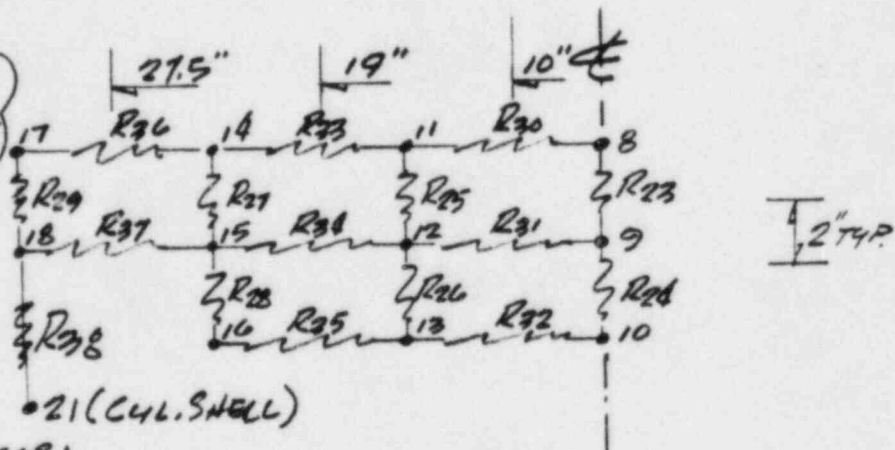 27.5" 19" 10" ℄
17 R36 14 R33 11 R30 8
R29 R27 R25 R23
18 R37 15 R34 12 R31 9
2" TYP.
R38 R28 R26 R24
16 R35 13 R32 10
21 (CYL. SHELL)